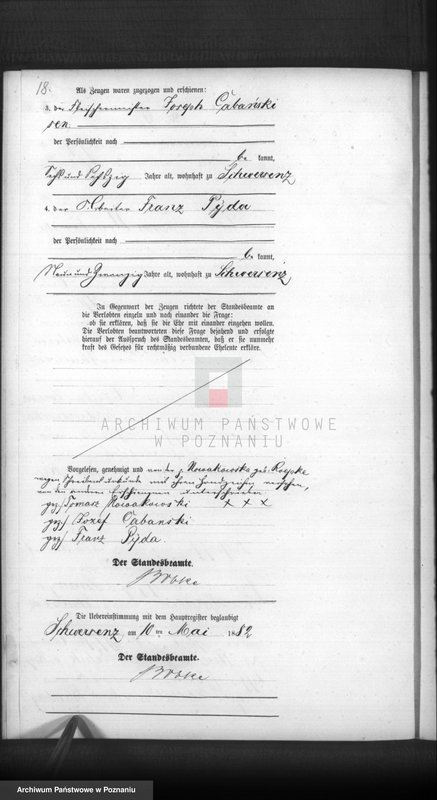 18.
Als Zeugen waren zugezogen und erschienen:
3. der Fleischermeister Joseph Cabański
sen.
der Persönlichkeit nach
be kannt,
Sechs und sechszig Jahre alt, wohnhaft zu Schwersenz
4. der Arbeiter Franz Pyda
der Persönlichkeit nach
be kannt,
Neun und zwanzig Jahre alt, wohnhaft zu Schwersenz
In Gegenwart der Zeugen richtete der Standesbeamte an
die Verlobten einzeln und nach einander die Frage:
ob sie erklären, daß sie die Ehe mit einander eingehen wollen.
Die Verlobten beantworteten diese Frage bejahend und erfolgte
hierauf der Ausspruch des Standesbeamten, daß er sie nunmehr
kraft des Gesetzes für rechtmäßig verbundene Eheleute erkläre.
ARCHIWUM PAŃSTWOWE
W POZNANIU
Vorgelesen, genehmigt und von der p. Nowakowska geb.
wegen Schreibensunkunde mit ihrem Handzeichen versehen,
von den anderen Erschienenen unterschrieben.
gez/ Tomasz Nowakowski + + +
gez/ Jozef Cabański
gez/ Franz Pyda.
Der Standesbeamte.
Die Uebereinstimmung mit dem Hauptregister beglaubigt
Schwersenz, am 10 ten Mai 1882
Der Standesbeamte.
Archiwum Państwowe w Poznaniu